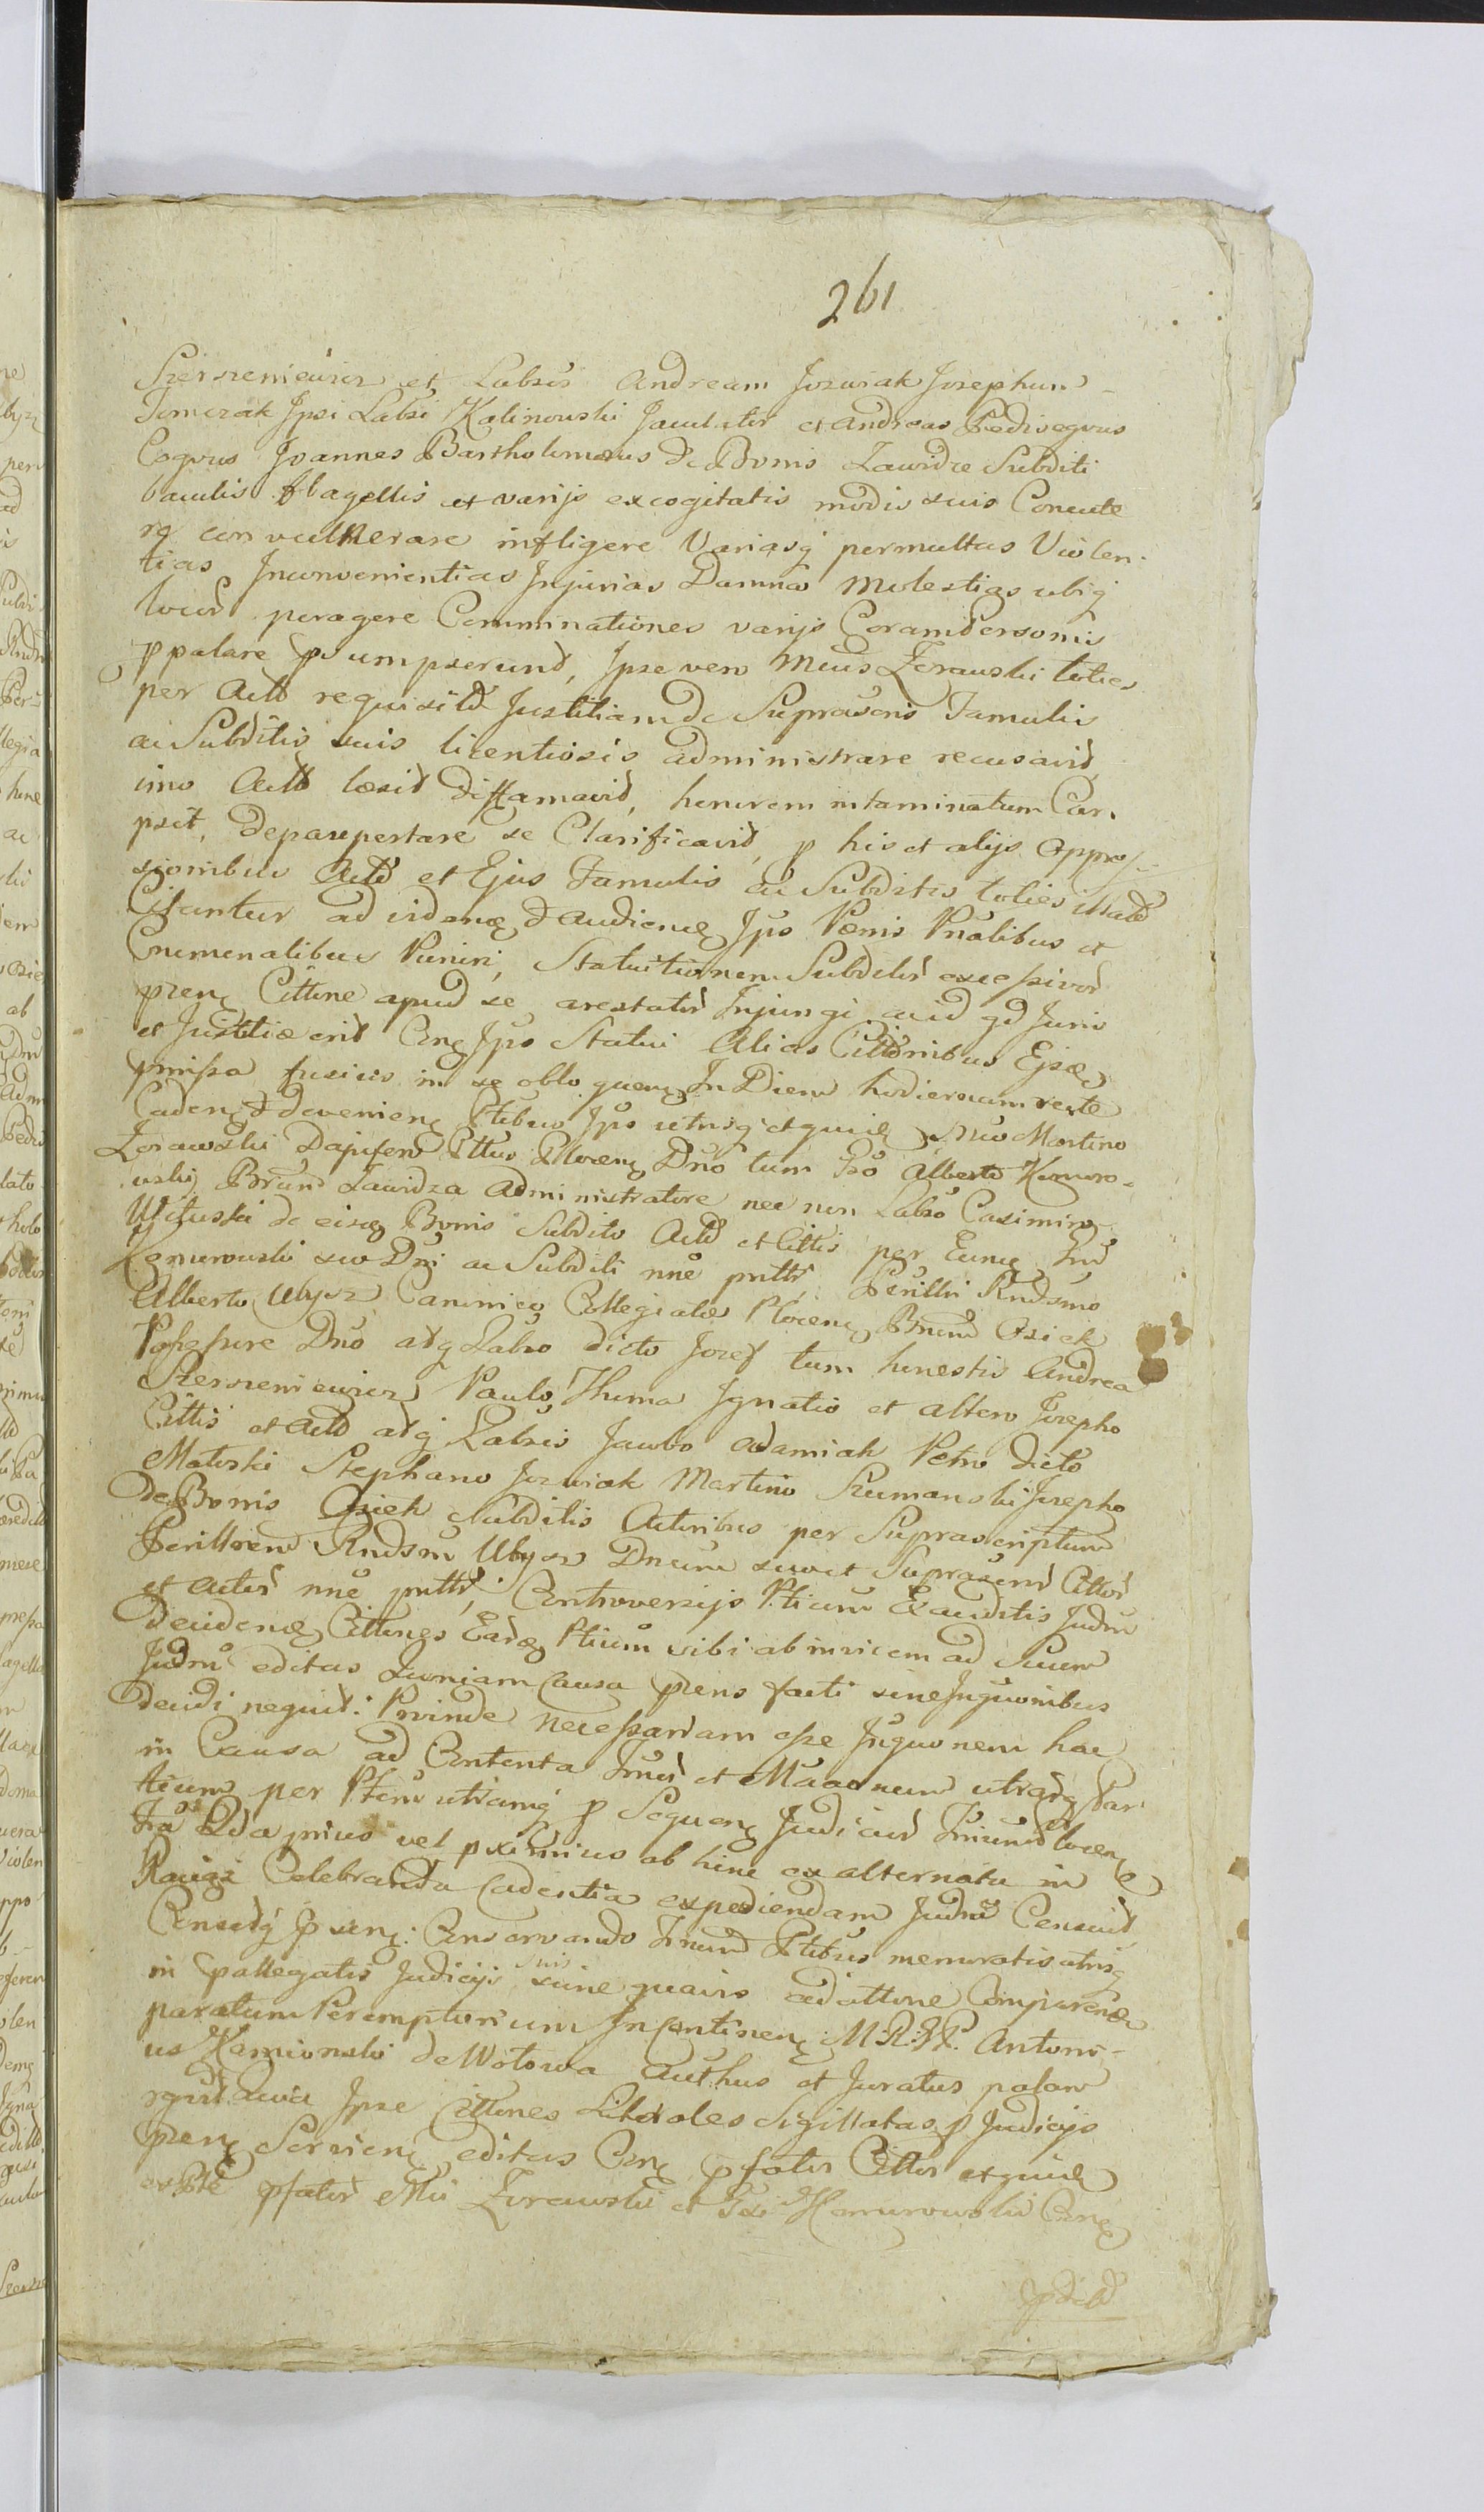 261
Szerszeniewicz et Labsos Andream Jozwiak Josephum
Tomczak Ipsi Labsi Kalinowski Jaculator et Andreas Pedisequus
Coquus Joannes Bartholomæus de Bonis Zawidze Subditi
baculis flagellis et varijs excogitatis modis suis Concute
re con vulnerare infligere Variasq permultas Violen-
tias Inconvenientias Injurias Damna Molestias ubiq
locor peragere Comminationes varijs Coram Personis
ppalare psumpserunt, Ipse vero Mcus Zorawski toties
per Actor requisitus Justitiam de Suprascris Famulis
ac Subditis suis licentiosis administrare recusavit,
imo Actor læsit diffamavit, honorem intaminatum Car-
psit, depaupertare se Clarificavit, p his et alijs Oppres-
sionibus Actor et Ejus Famulis ac Subditis toties illatis
Citantur ad vidend et audiend Ipsos Pænis Pnalibus et
Criminalibus Puniri, Statuitionem Subditor excessivor
psen Cittne apud se arestator Injungi, ac id qd Juris
et Justitiæ erit Con Ipsos Statui alias Cittonibus Ejsd
pmissa fusius in se obloquen. In Diem hodiernum recte
Caden et devenien Ptibus Ipsis utrisq et quidem Mco Martino
Zorawski Dapifero Pttus Plocen Dno tum Gso Alberto Komoro-
wski Bnor Zawidza Administratore nec non Labso Casimiro
Witulski de eisd Bonis Subdito Actor et Cittis per Eund Gsum
Komorowski suo Dni ac Subditi nne pntti, Perillri Rndsmo
Alberto Ubysz Canonico Collegiatæ Plocen Bnorum Osiek
Possessore Dno atq Labso dicto Jozef tum honestis Andrea
Szerszeniewicz Paulo Thoma Ignatio et altero Josepho
Cittis et Actor atq Labsis Jacobo Adamiak Petro dicto
Matoski Stephano Jozwiak Martino Szumanski Josepho
de Bonis Osiek Subditis Actoribus per Suprascriptum
Perillrem Rndsm Ubysz Dnum suo et Suprascrior Cittor
et Actor nne pntti, Controversijs Ptium Exauditis Judm
decidend Cittnes Eard Ptium sibi ab invicem ad Suum
Judm editas Quoniam Causa psens facti sine Inquonibus
decidi nequit: Proinde necessariam esse Inquonem hac
in Causa ad Contenta Ttnor et Mandnum utrarq Par-
tium per Ptem utramq p Sequen Judicior Ttnum Plocen
Fra 2da prius vel pximius ab hinc ex alternata in
Raciąz Celebranda Cadentia expediendam Judm Censuit
Censetq psen: Conservando Ttnum Ptibus memoratis utrisq
in pallegatis Judicijs suis sine quavis adcittne Comparend
paratum Peremptorium In Continen M. R. G. P. Antoni-
us Kamionski de Wotowa Authus et Juratus palam
rgnt Quia Ipse Cittones Literales Sigillatas p Judicijs
psen Servien editas Con pfatos Cittos et quidem
ex Pte pfator Mci Zorawski et Gsi Komorowski Con
pdict